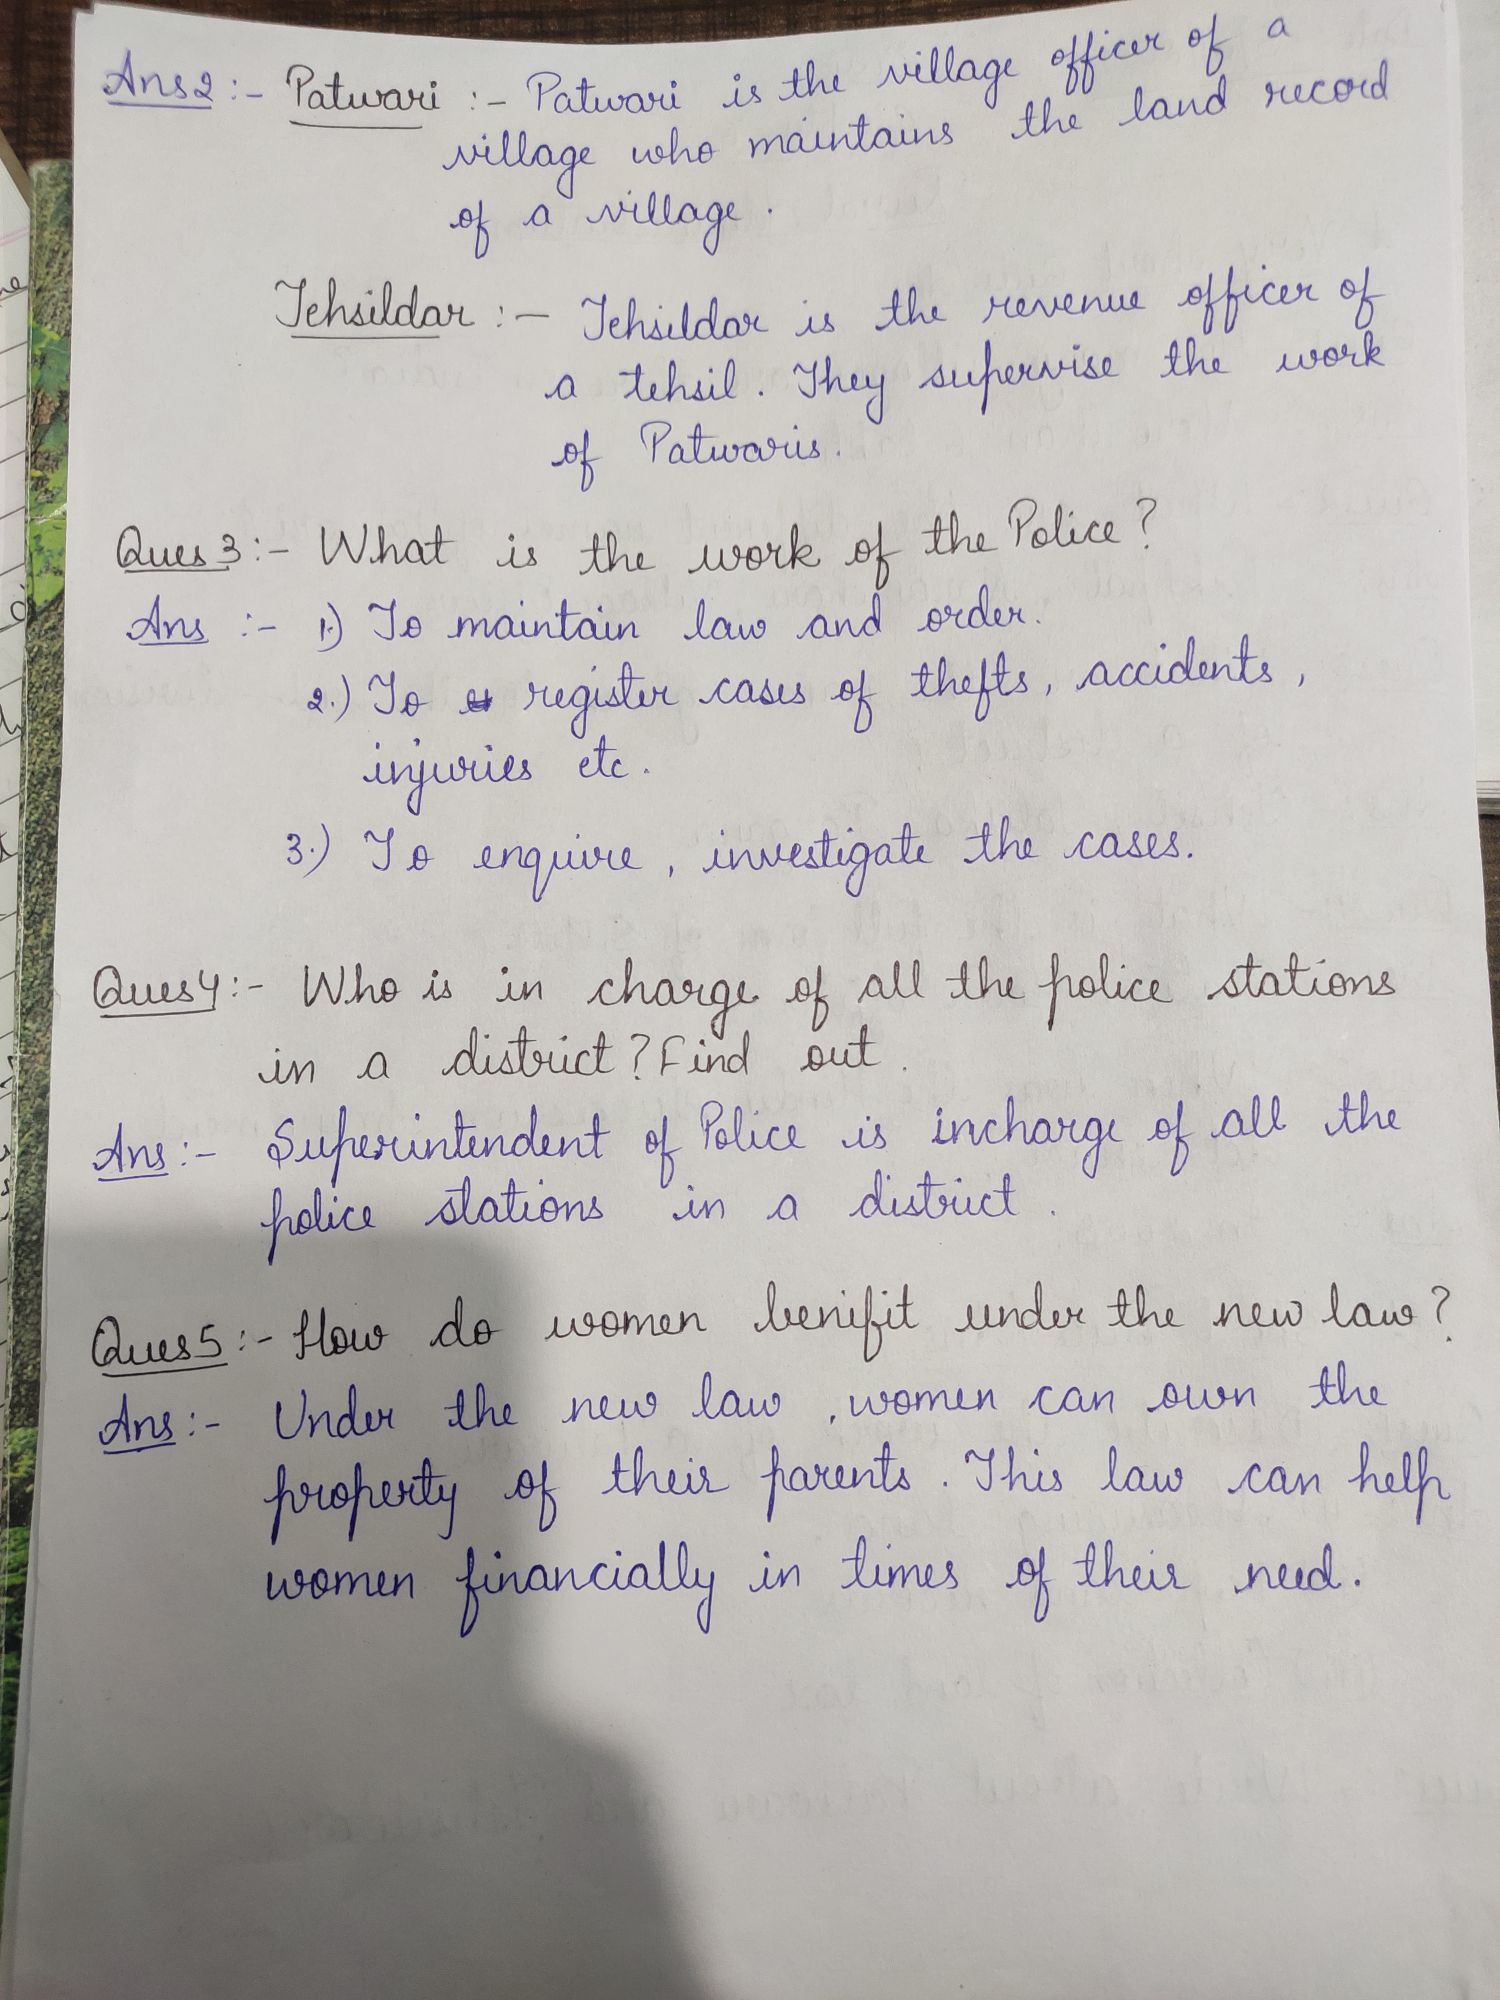 Ans2 :- Patwari :- Patwari is the village officer of a
village who maintains the land record
of a village.
Tehsildar :- Tehsildar is the revenue officer of
a tehsil. They supervise the work
of Patwaris.
Ques 3 :- What is the work of the Police?
Ans :- 1.) To maintain law and order.
2.) To register cases of thefts, accidents,
injuries etc.
3.) To enquire, investigate the cases.
Ques 4 :- Who is in charge of all the police stations
in a district? Find out.
Ans :- Superintendent of Police is incharge of all the
police stations in a district.
Ques 5 :- How do women benifit under the new law?
Ans :- Under the new law, women can own the
property of their parents. This law can help
women financially in times of their need.